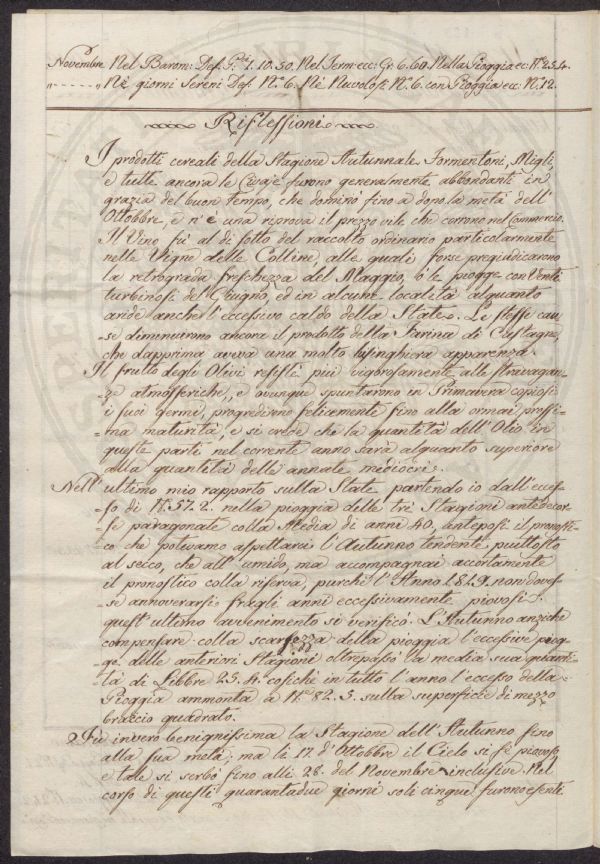 Novembre Nel Barom: Def. P.ci 1. 10. 50. Nel Term: ecc: Gr. 6. 60. Nella Pioggia ec: N.º 25.4.
" ------ " Ne giorni Sereni Def. N.º 6. Ne Nuvolosi N.º 6. con Pioggia ec: N.º 12.
Riflessioni
I prodotti cereali della Stagione Autunnale Formentoni, Migli,
e tutte ancora le Civaje furono generalmente abbondanti in
grazia del buon Tempo, che dominò fino a dopo la metà dell'
Ottobbre, e n'è una riprova il prezzo vile che corrono nel Commercio.
Il Vino fù al di sotto del raccolto ordinario particolarmente
nelle Vigne delle Colline, alle quali forse pregiudicarono
la retrograda freschezza del Maggio, o le piogge con Venti
turbinosi del Giugno, ed in alcune località alquanto
aride anche l'eccesivo caldo della State. Le stesse cau
se diminuirono ancora il prodotto della Farina di Castagne,
che dapprima aveva una molto lusinghiera apparenza.
Il frutto degli Olivi resistè più vigorosamente alle stravagan-
-ze atmosferiche, e ovunque spuntarono in Primavera copiosi
i suoi germi, progredirono felicemente fino alla ormai prossi-
-ma maturità, e si crede che la quantità dell'Olio in
queste parti nel corrente anno sarà alquanto superiore
alla quantità delle annate mediocri.
Nell'ultimo mio rapporto sulla State partendo io dall'ecces-
so di N.º 57. 2. nella pioggia delle tre Stagioni antedecor-
se paragonate colla Media di anni 40, anteposi il pronosti-
co che potevamo aspettarci l'Autunno tendente piuttosto
al secco, che all'umido, ma accompagnai accortamente
il pronostico colla riserva, purchè l'Anno 1819. non doves-
-se annoverarsi fra gli anni eccessivamente piovosi.
quest'ultimo avvenimento si verificò. L'Autunno anzichè
compensare colla scarsezza della pioggia l'eccessive piog-
-ge delle anteriori Stagioni oltrepassò la media sua quanti-
tà di Libbre 25. 4. cosichè in tutto l'anno l'eccesso della
Pioggia ammonta a N.º 82. 5. sulla superficie di mezzo
braccio quadrato.
Fù invero benignissima la Stagione dell'Autunno fino
alla sua metà; ma li 17 d'Ottobbre il Cielo si fè piovoso
e tale si serbò fino alli 28. del Novembre inclusive. Nel
corso di questi quarantadue giorni soli cinque furono esenti